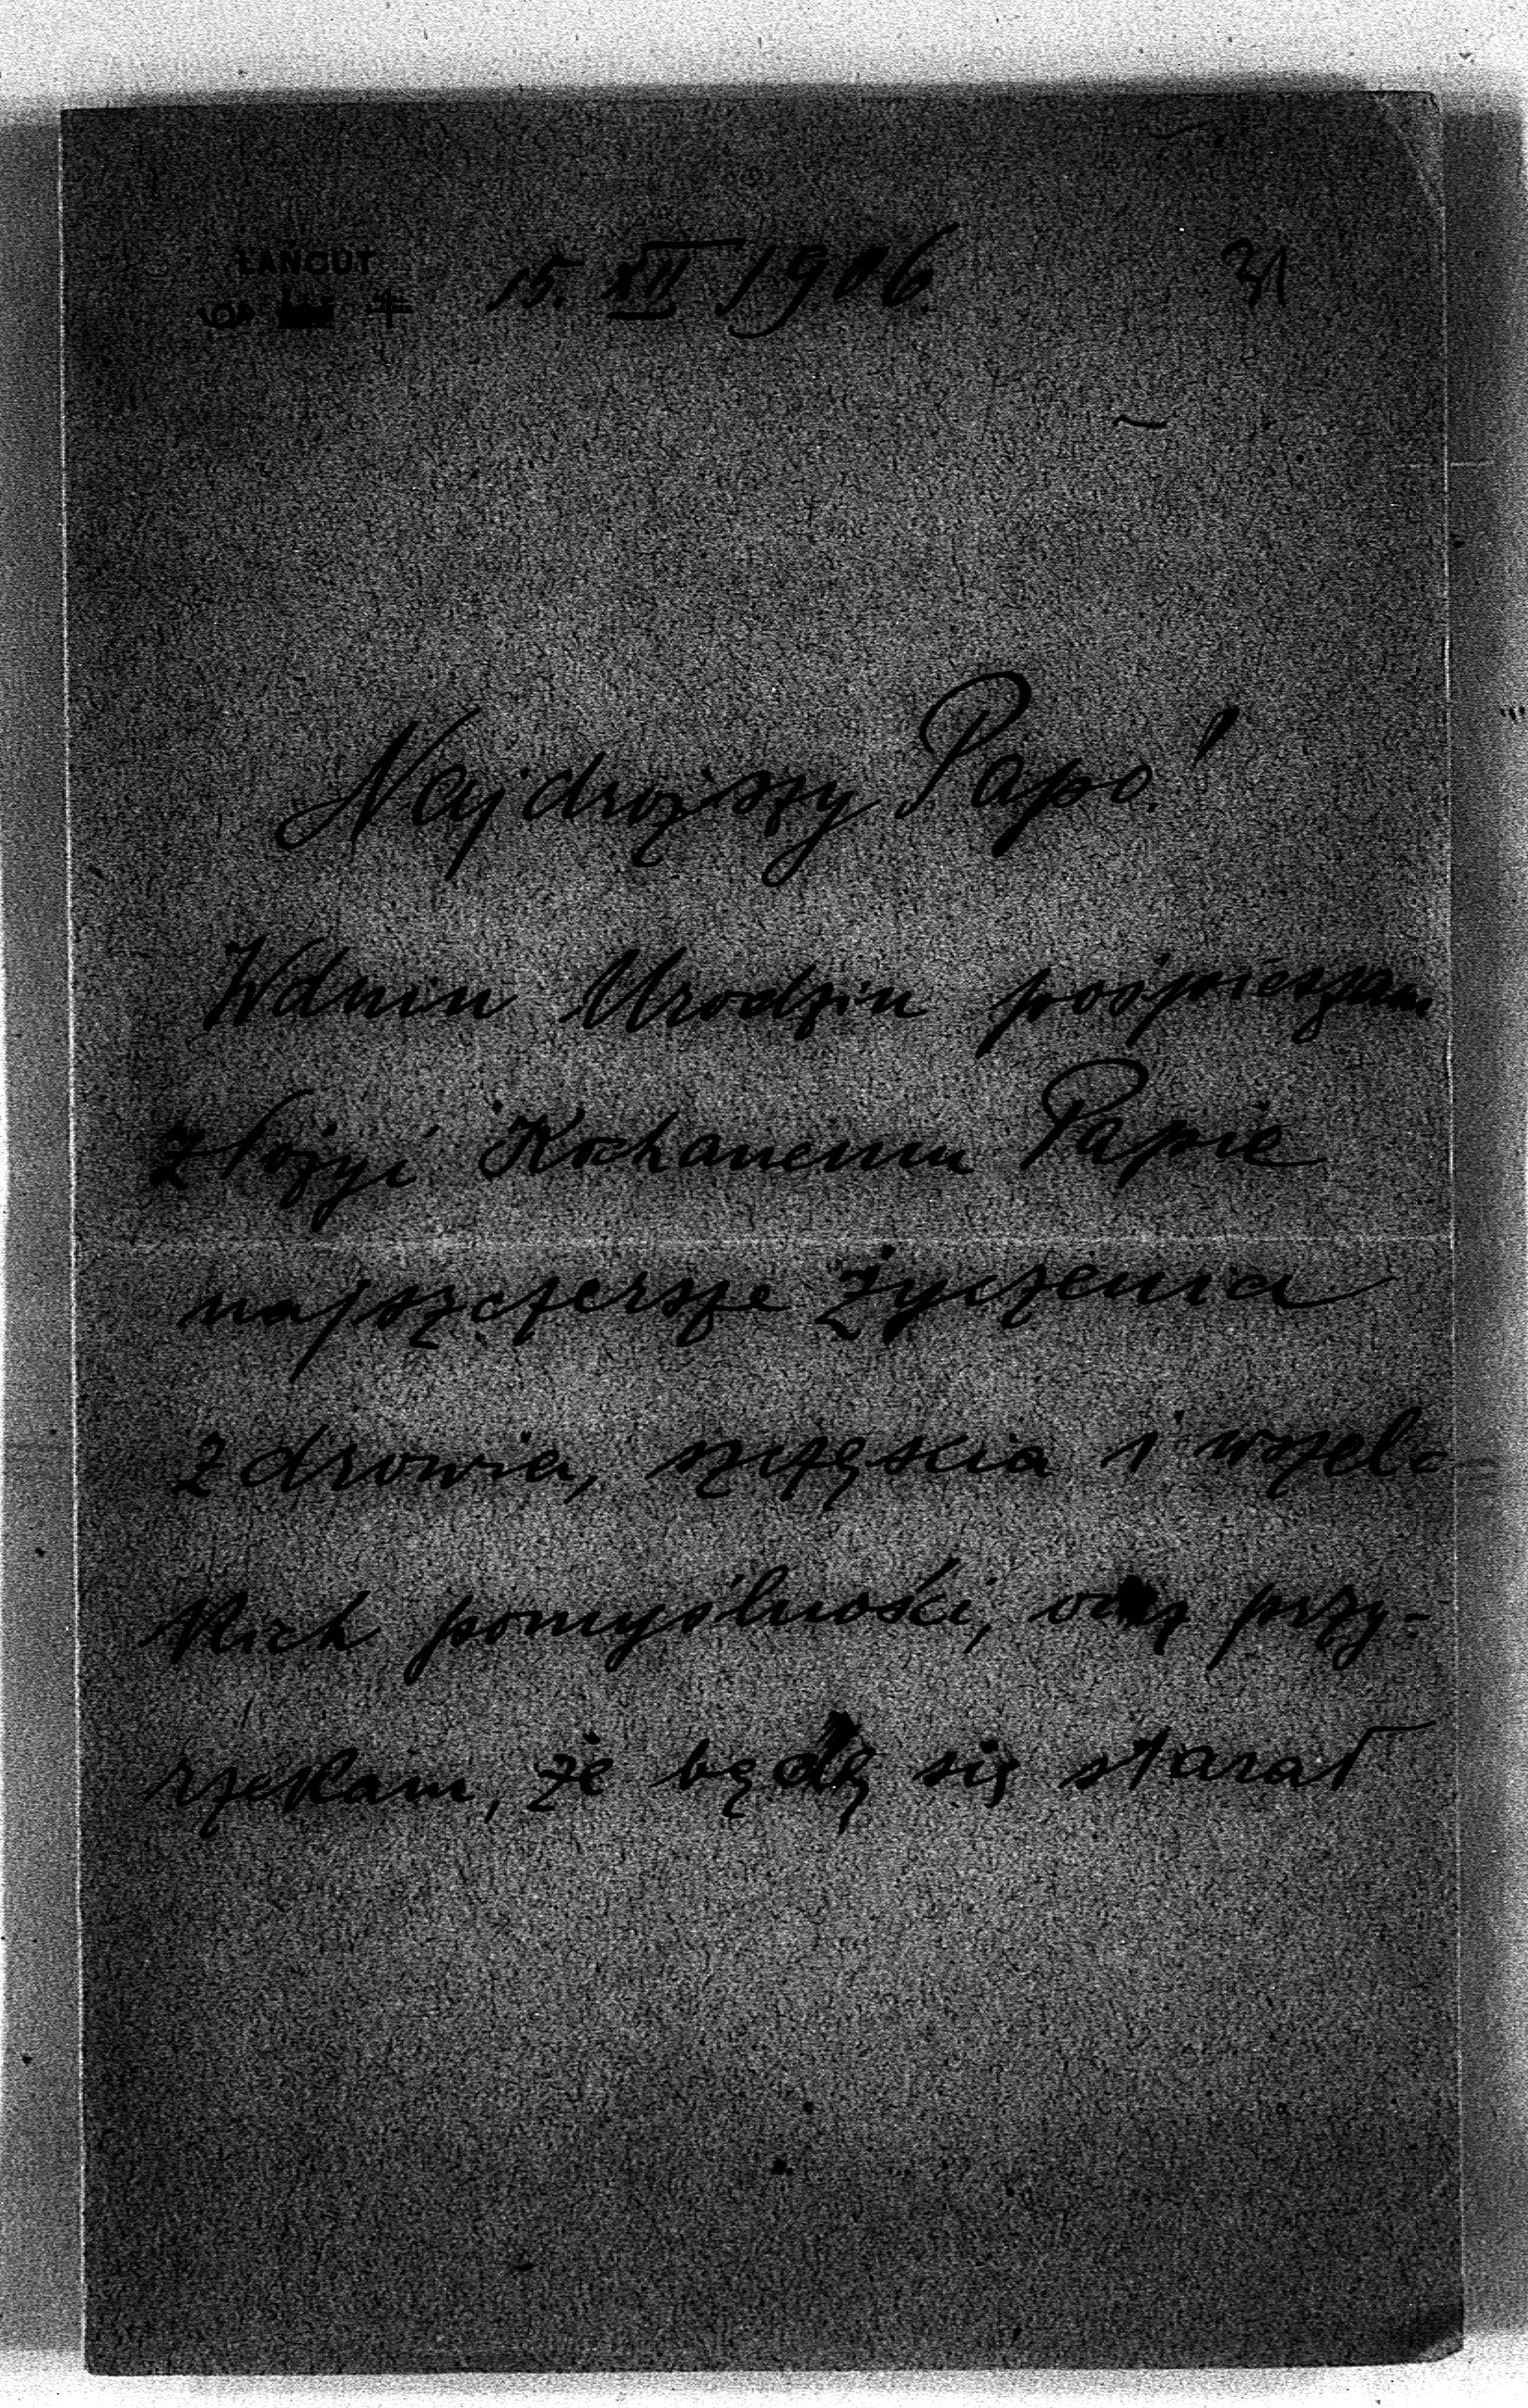 ŁAŃCUT 15. XII 1906. 31
Najdroższy Papo!
W dniu Urodzin pośpieszam
złożyć Kochanemu Papie
najszczersze życzenia
zdrowia, szczęścia i wszel=
kich pomyślności, oraz przy=
rzekam, że będę się starał